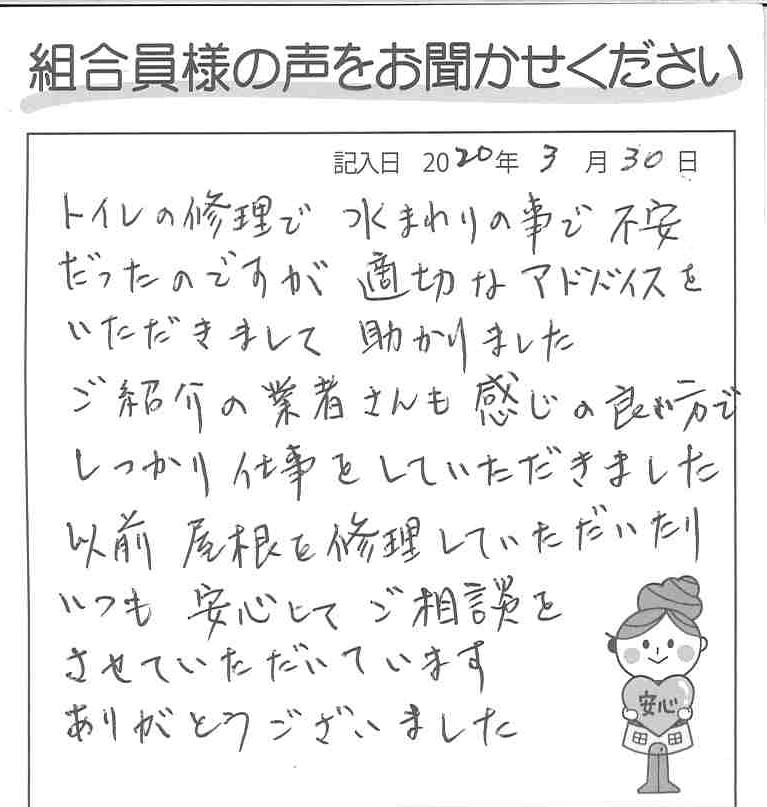 組合員様の声をお聞かせください
記入日 2020年 3月30日
トイレの修理で 水まわりの事で 不安
だったのですが 適切な アドバイスを
いただきまして 助かりました
ご紹介の業者さんも 感じの良い方で
しっかり 仕事をしていただきました
以前 屋根を修理していただいたり
いつも 安心して ご相談を
させていただいています
ありがとうございました
安心